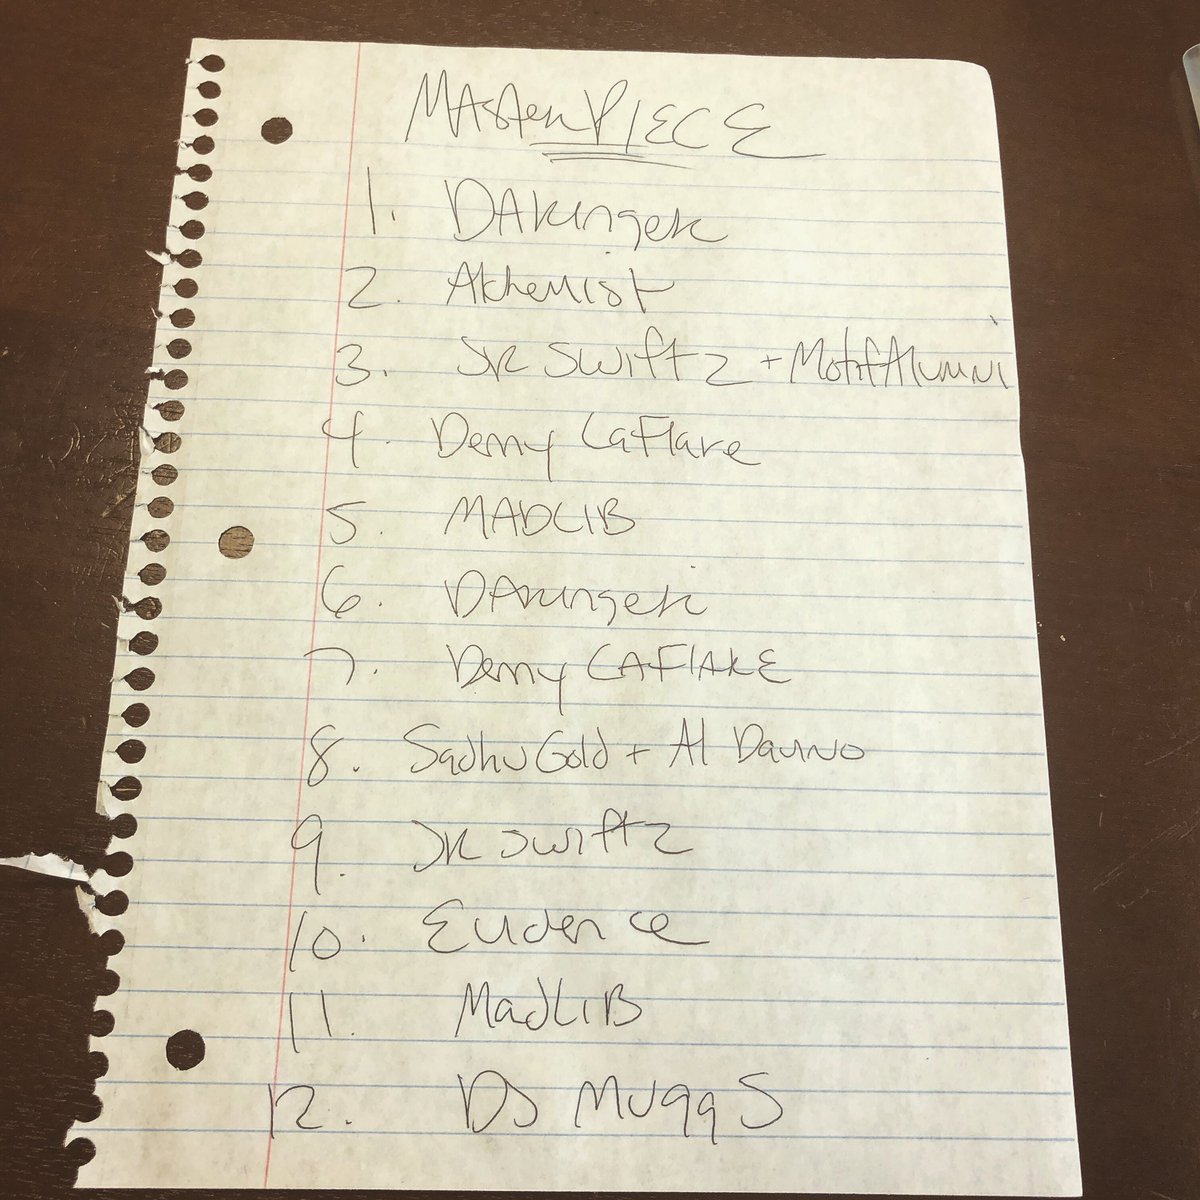 MAsterPIECE
1. DAringer
2. Alchemist
3. JR Swiftz + Motif Alumni
4. Denny LaFlare
5. MADLIB
6. DAringer
7. Denny LAFLARE
8. Sadhu Gold + Al Divino
9. JR Swiftz
10. Evidence
11. MadLIB
12. DJ MuggS